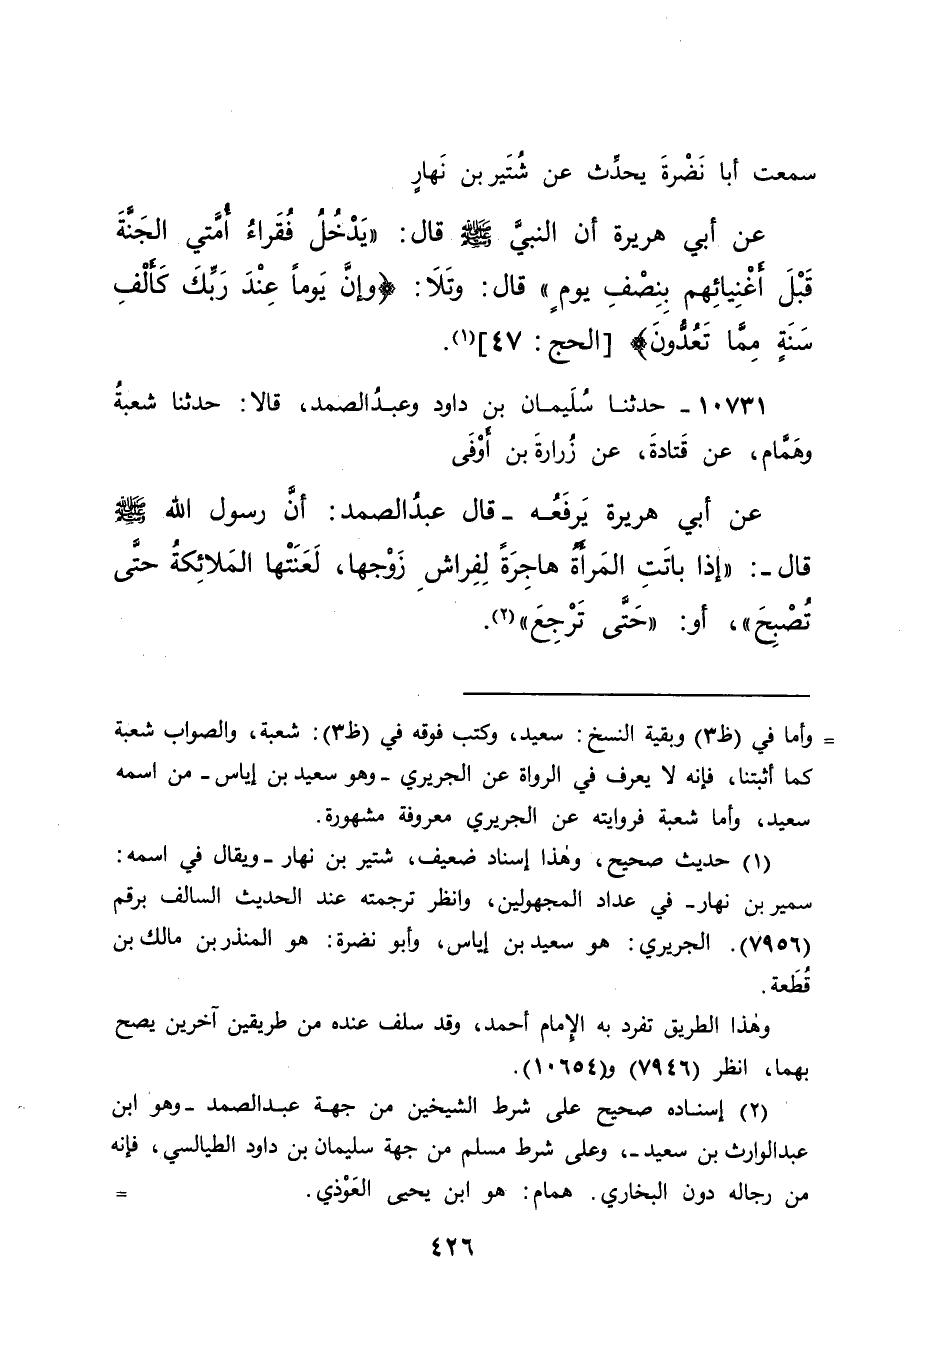 سمعت أبا نَضْرةَ يحدِّث عن شُتَير بن نَهارٍ
عن أبي هريرة أن النبيَّ ﷺ قال: «يَدْخُلُ فُقَراءُ أُمَّتي الجَنَّةَ
قَبْلَ أَغْنِيائِهم بِنِصْفِ يومٍ» قال: وتَلَا: ﴿وإنَّ يَوماً عِنْدَ رَبِّكَ كَأَلْفِ
سَنَةٍ مِمَّا تَعُدُّونَ﴾ [الحج: ٤٧](١).
١٠٧٣١ - حدثنا سُلَيمان بن داود وعبدُالصمد، قالا: حدثنا شعبةُ
وهَمَّام، عن قَتادةَ، عن زُرارةَ بن أَوْفَى
عن أبي هريرة يَرفَعُه - قال عبدُالصمد: أنَّ رسول الله ﷺ
قال -: «إذا باتَتِ المَرأَةُ هاجِرَةً لِفِراشِ زَوْجِها، لَعَنَتْها المَلائِكةُ حتَّى
تُصْبِحَ»، أو: «حَتَّى تَرْجِعَ»(٢).
= وأما في (ظ٣) وبقية النسخ: سعيد، وكتب فوقه في (ظ٣): شعبة، والصواب شعبة
كما أثبتنا، فإنه لا يعرف في الرواة عن الجريري - وهو سعيد بن إياس - من اسمه
سعيد، وأما شعبة فروايته عن الجريري معروفة مشهورة.
(١) حديث صحيح، وهٰذا إسناد ضعيف، شتير بن نهار - ويقال في اسمه:
سمير بن نهار - في عداد المجهولين، وانظر ترجمته عند الحديث السالف برقم
(٧٩٥٦). الجريري: هو سعيد بن إياس، وأبو نضرة: هو المنذر بن مالك بن
قُطَعة.
وهٰذا الطريق تفرد به الإمام أحمد، وقد سلف عنده من طريقين آخرين يصح
بهما، انظر (٧٩٤٦) و(١٠٦٥٤).
(٢) إسناده صحيح على شرط الشيخين من جهة عبدالصمد - وهو ابن
عبدالوارث بن سعيد -، وعلى شرط مسلم من جهة سليمان بن داود الطيالسي، فإنه
من رجاله دون البخاري. همام: هو ابن يحيى العَوْذي. =
٤٢٦